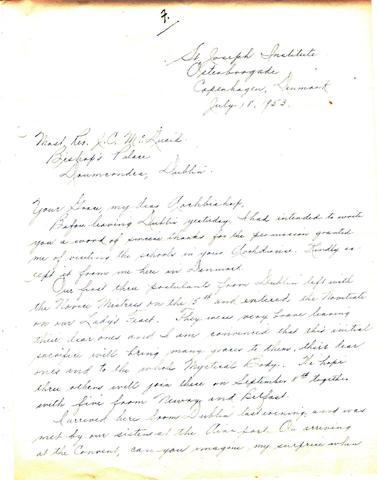 7.
St. Joseph Institute
Osterbrogade
Copenhagen, Denmark
July 18, 1953.
Most Rev. J.C. McQuaid
Bishop's Palace
Drumcondra, Dublin.
Your Grace, my dear Archbishop,
Before leaving Dublin yesterday, I had intended to write
you a word of sincere thanks for the permission granted
me of visiting the schools in your Archdiocese. Kindly ac-
cept it from me here in Denmark.
Our first three postulants from Dublin left with
the Novice Mistress on the 5th and entered the Novitiate
on our Lady's Feast. They were very brave leaving
their dear ones and I am convinced that this initial
sacrifice will bring many graces to them, their dear
ones and to the whole Mystical Body. We hope
three others will join these on September 8th together
with five from Newry and Belfast.
I arrived here from Dublin last evening and was
met by our sisters at the Air port. On arriving
at the Convent, can you imagine my surprise when